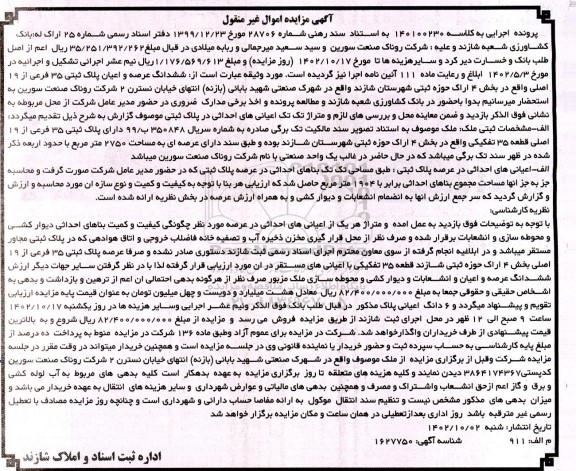 آگهی مزایده اموال غیر منقول
پرونده اجرایی به کلاسه ۱۴۰۱۰۰۲۳۰ به استناد سند رهنی شماره ۲۸۷۰۶ مورخ ۱۳۹۹/۱۲/۲۳ دفتر اسناد رسمی شماره ۲۵ اراک له:بانک
کشاورزی شعبه شازند و علیه : شرکت روناک صنعت سورین و سید سعید میرجمالی و ربابه میلادی در قبال مبلغ۳۵/۲۵۱/۳۹۲/۲۶۲ ریال اعم از اصل
طلب بانک و خسارت دیر کرد و سایرهزینه ها تا مورخ ۱۴۰۲/۱۰/۱۷ (روز مزایده) و مبلغ ۱/۱۷۶/۵۶۹/۶۱۳ ریال نیم عشر اجرائی تشکیل و اجرائیه در
مورخ ۱۴۰۲/۵/۳ ابلاغ و رعایت ماده ۱۱۱ آئین نامه اجرا نیز گردیده است. مورد وثیقه عبارت است از: ششدانگ عرصه و اعیان پلاک ثبتی ۳۵ فرعی از ۱۹
اصلی واقع در بخش ۴ اراک حوزه ثبتی شهرستان شازند واقع در شهرک صنعتی شهید بابائی (بازنه) انتهای خیابان نسترن ۲ شرکت روناک صنعت سورین به
استحضار میرسانیم بدوا باحضور در بانک کشاورزی شعبه شازند و مطالعه پرونده و اخذ برخی مدارک ضروری در حضور مدیر عامل شرکت از محل مربوطه به
نشانی فوق الذکر بازدید و ضمن معاینه محل و بررسی های لازم و متراژ تک تک اعیانی های احداثی در پلاک ثبتی موصوف گزارش به شرح ذیل تقدیم میگردد:
الف-مشخصات ثبتی ملک: ملک موصوف به استناد تصویر سند مالکیت تک برگی صادره به شماره سریال ۳۵۰۸۴۸ ب/۹۹ دارای پلاک ثبتی ۳۵ فرعی از ۱۹
اصلی قطعه ۳۵ تفکیکی واقع در بخش ۴ اراک حوزه ثبتی شهرستان شازند بوده و طبق سند دارای عرصه ای به مساحت ۲۷۵۰ متر مربع با حدود اربعه ذکر
شده در ظهر سند تک برگی میباشد که در حال حاضر در غالب یک واحد صنعتی با نام شرکت روناک صنعت سورین میباشد
الف-اعیانی های احداثی در عرصه پلاک ثبتی : طبق مساحی تک تک بناهای احداثی در عرصه پلاک ثبتی که در حضور مدیر عامل شرکت صورت گرفت و محاسبه
جز به جز انها مساحت مجموع بناهای احداثی برابر با ۱۹۰۴ متر مربع حاصل شد که ارزیابی هر بنا با توجه به کیفیت و کمیت و نوع سازه ان مورد محاسبه و ارزش
و گزارش گردید که سر جمع ارزش انها به انضمام انشعابات و دیوار کشی و به همراه ارزش عرصه در بخش نظریه ارائه شده است.
نظریه کارشناسی:
با توجه به توضیحات فوق بازدید به عمل امده و متراژ هر یک از اعیانی های احداثی در عرصه مورد نظر چگونگی کیفیت و کمیت بناهای احداثی دیوار کشی
و محوطه سازی و انشعابات برقرار شده و صرف نظر از محل قرار گیری مخزن ذخیره آب و تصفیه خانه فاضلاب خروجی و اتاق هوادهی که در پلاک ثبتی مجاور
مستقر میباشد و در ابلاغیه انجام گرفته از سوی معاون محترم اجرای اسناد رسمی ثبت شازند دستوری صادر نشده و صرفا عرصه پلاک ثبتی ۳۵ فرعی از ۱۹
اصلی بخش ۴ اراک حوزه ثبتی شازند قطعه ۳۵ تفکیکی با اعیانی های مستقر در ان مورد ارزیابی قرار گرفته لذا با در نظر گرفتن سایر جهات دیگر ارزش
ششدانگ عرصه و اعیان و انشعابات و دیوار کشی و محوطه سازی ملک مزبور صرف نظر از هرگونه بدهی احتمالی ان اعم از ترهین و بازداشت و بدهی به
اشخاص حقیقی و حقوقی جمعا به مبلغ ۸۲/۴۰۰/۰۰۰/۰۰۰ ریال معادل هشت میلیارد و دویست و چهل میلیون تومان به عنوان قیمت پایه مزایده ارزیابی
تقویم و پیشنهاد میگردد و ۶ دانگ اعیانی پلاک مذکور در قبال طلب بانک فوق الذکر ونیم عشر اجرایی وسایر هزینه ها در روز یکشنبه ۱۴۰۲/۱۰/۱۷
ساعت ۹ صبح الی ۱۲ ظهر در محل اجرای ثبت شازند از طریق مزایده فروش می رسد و مزایده از مبلغ ۸۲/۴۰۰/۰۰۰/۰۰۰ ریال شروع و به بالاترین
قیمت پیشنهادی از طرف خریداران واگذارخواهد شد. شرکت در مزایده برای عموم آزاد وطبق ماده ۱۳۶ شرکت در مزایده منوط به پرداخت ده درصد از
مبلغ پایه کارشناسی به حساب سپرده ثبت و حضور خریدار یا نماینده قانونی وی در جلسه مزایده است و همچنین خریدار میتواند در وقت مقرر در جلسه
مزایده شرکت وقبل از برگزاری مزایده از ملک موصوف واقع در شهرک صنعتی شهید بابائی (بازنه) انتهای خیابان نسترن ۲ شرکت روناک صنعت سورین
کدپستی۳۸۶۴۱۷۴۳۶۷ دیدن نمایند و کلیه هزینه های متعلقه تا روز برگزاری مزایده به عهده بدهکار است کلیه بدهی های مربوط به آب لوله کشی
و برق و گاز اعم ازحق انشعاب واشتراک و مصرف و همچنین بدهی های مالیاتی و عوارض شهرداری و سایر هزینه های انتقال به عهده خریدار می باشد و
میزان بدهی های مذکور مشخص نیست و تنظیم سند انتقال موکول به ارائه مفاصا حساب دارائی و شهرداری است و چنانچه روز مزایده مصادف با تعطیل
رسمی غیر مترقبه باشد روز اداری بعدازتعطیلی در همان ساعت و مکان مزایده برگزار خواهد شد
تاریخ انتشار: شنبه ۱۴۰۲/۱۰/۰۲
م الف: ۹۱۱ شناسه آگهی: ۱۶۲۷۷۵۰
اداره ثبت اسناد و املاک شازند